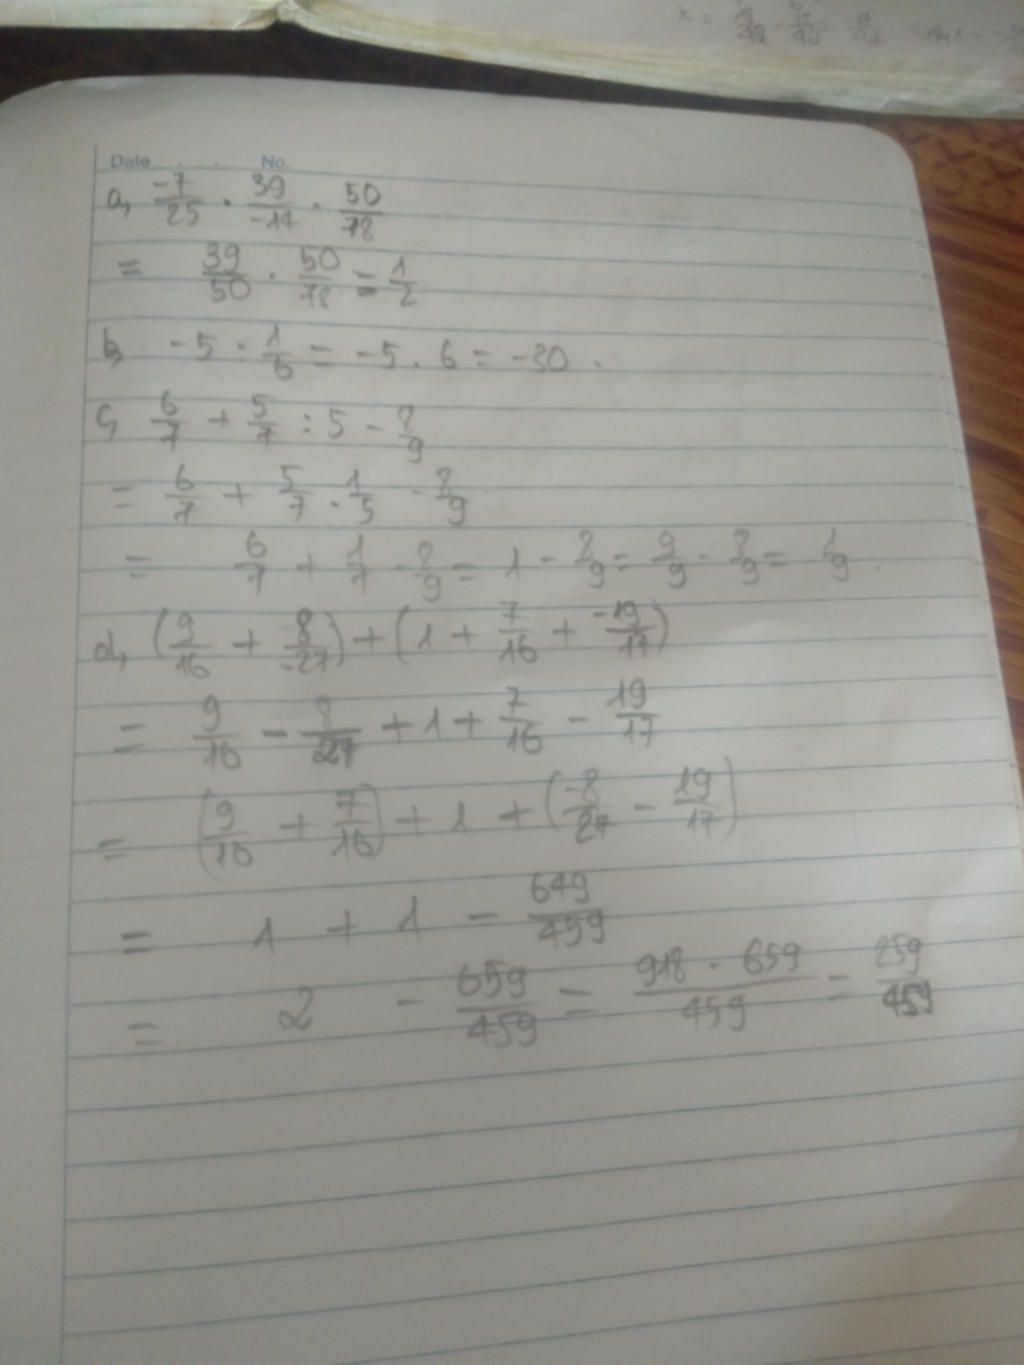 Date . . No.
a, -7/25 . 39/-14 . 50/78
= 39/50 . 50/78 = 1/2
b, -5 : 1/6 = -5 . 6 = -30 .
c, 6/7 + 5/7 : 5 - 8/9
= 6/7 + 5/7 . 1/5 - 8/9
= 6/7 + 1/7 - 8/9 = 1 - 8/9 = 9/9 - 8/9 = 1/9
d, (9/16 + 8/-27) + (1 + 7/16 + -19/17)
= 9/16 - 8/27 + 1 + 7/16 - 19/17
= (9/16 + 7/16) + 1 + (-8/27 - 19/17)
= 1 + 1 - 649/459
= 2 - 659/459 = 918 - 659/459 = 259/459